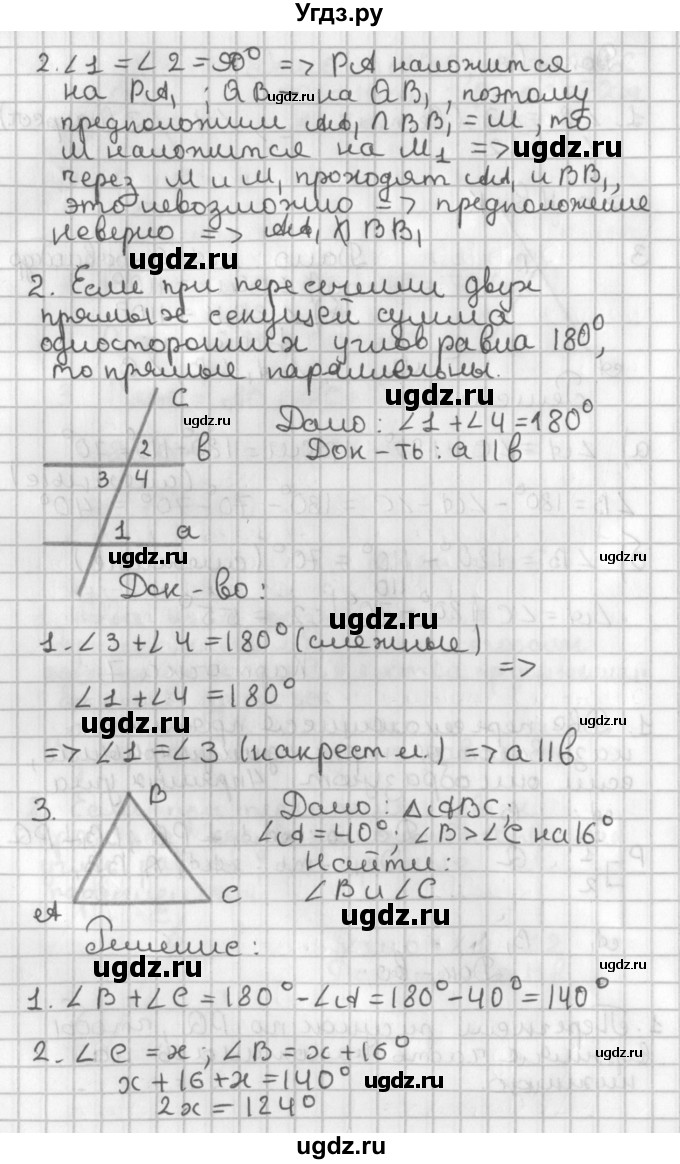 Угдз.ру
2. ∠1 = ∠2 = 90° => PA наложится
на PA₁ ; QB – на QB₁, поэтому
предположим AA₁ ∩ BB₁ = M, то
M наложится на M₁ =>
ugdz.ru
через M и M₁ проходят AA₁ и BB₁,
это невозможно => предположение
неверно => AA₁ ∦ BB₁
ugdz.ru
2. Если при пересечении двух
прямых секущей сумма
односторонних углов равна 180°,
то прямые параллельны.
ugdz.ru
c
ugdz.ru
Дано: ∠1 + ∠4 = 180°
2 в
Док-ть: a || в
3 4
1 a
ugdz.ru
ugdz.ru
Док-во:
ugdz.ru
1. ∠3 + ∠4 = 180° (смежные)
=>
∠1 + ∠4 = 180°
ugdz.ru
ugdz.ru
=> ∠1 = ∠3 (накрест л.) => a || в
3.
B
Дано: △ABC;
∠A = 40°; ∠B > ∠C на 16°
Найти:
∠B и ∠C
A
C
ugdz.ru
Решение:
ugdz.ru
1. ∠B + ∠C = 180° - ∠A = 180° - 40° = 140°
2. ∠C = x; ∠B = x + 16°
ugdz.ru
x + 16 + x = 140°
ugdz.ru
2x = 124°
ugdz.ru